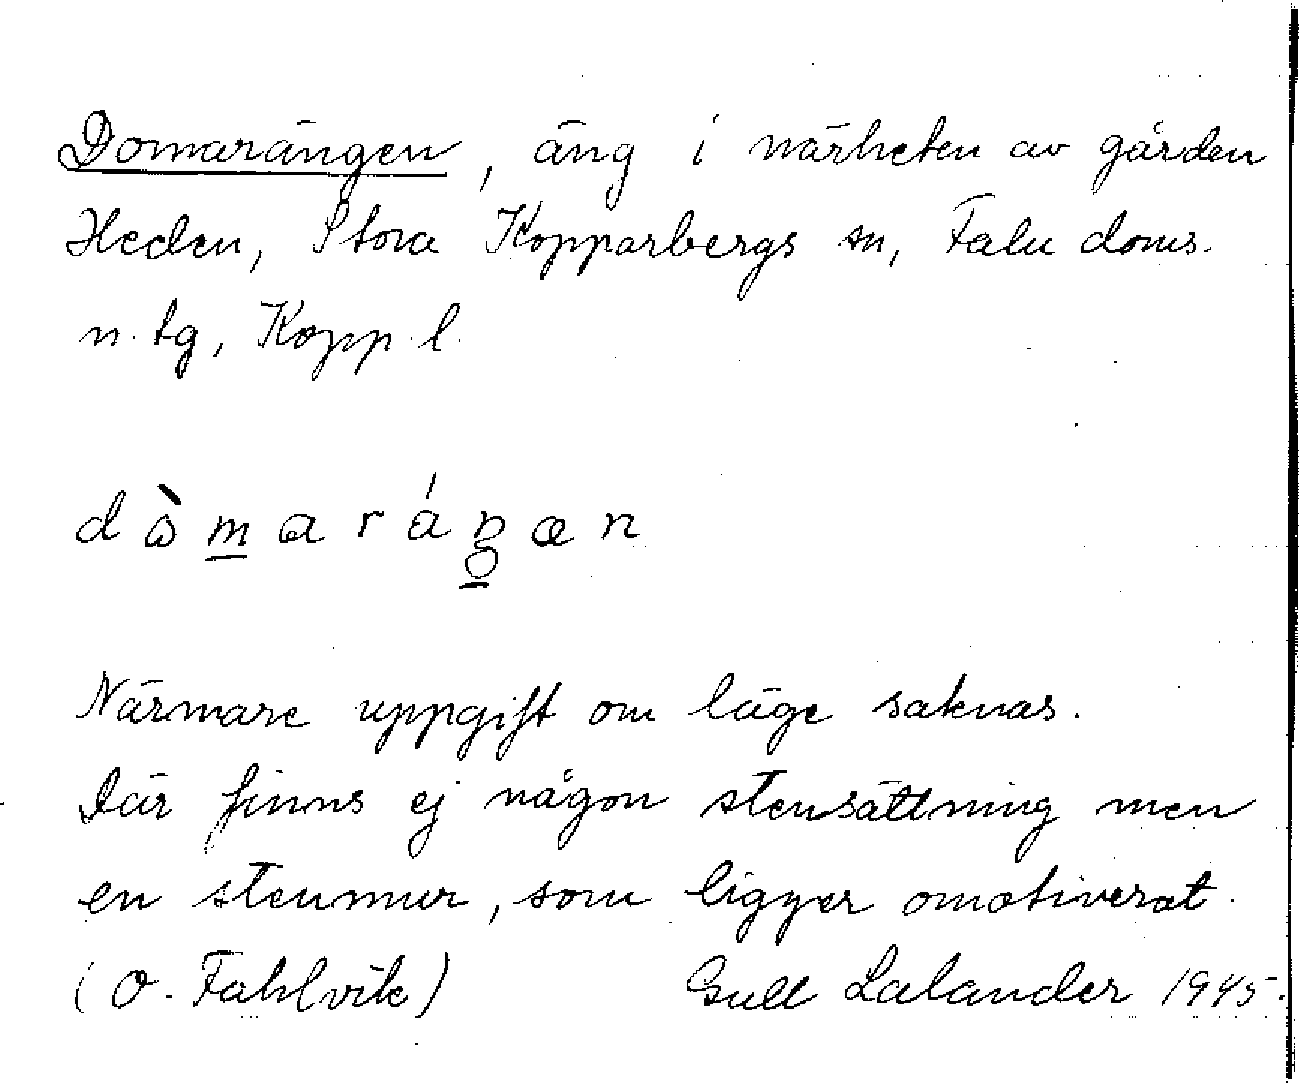 Domarängen, äng i närheten av gården
Heden, Stora Kopparbergs sn, Falu doms.
n. tg, Kopp. l.
Närmare uppgift om läge saknas.
Där finns ej någon stensättning men
en stenmur, som ligger omotiverat.
(O. Fahlvik) Gull Lalander 1945.